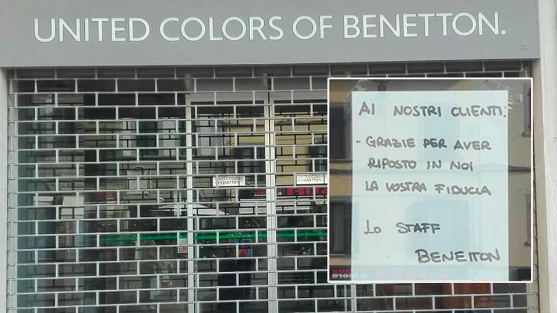 UNITED COLORS OF BENETTON.
AI NOSTRI CLIENTI:
- GRAZIE PER AVER
RIPOSTO IN NOI
LA VOSTRA FIDUCIA
LO STAFF
BENETTON